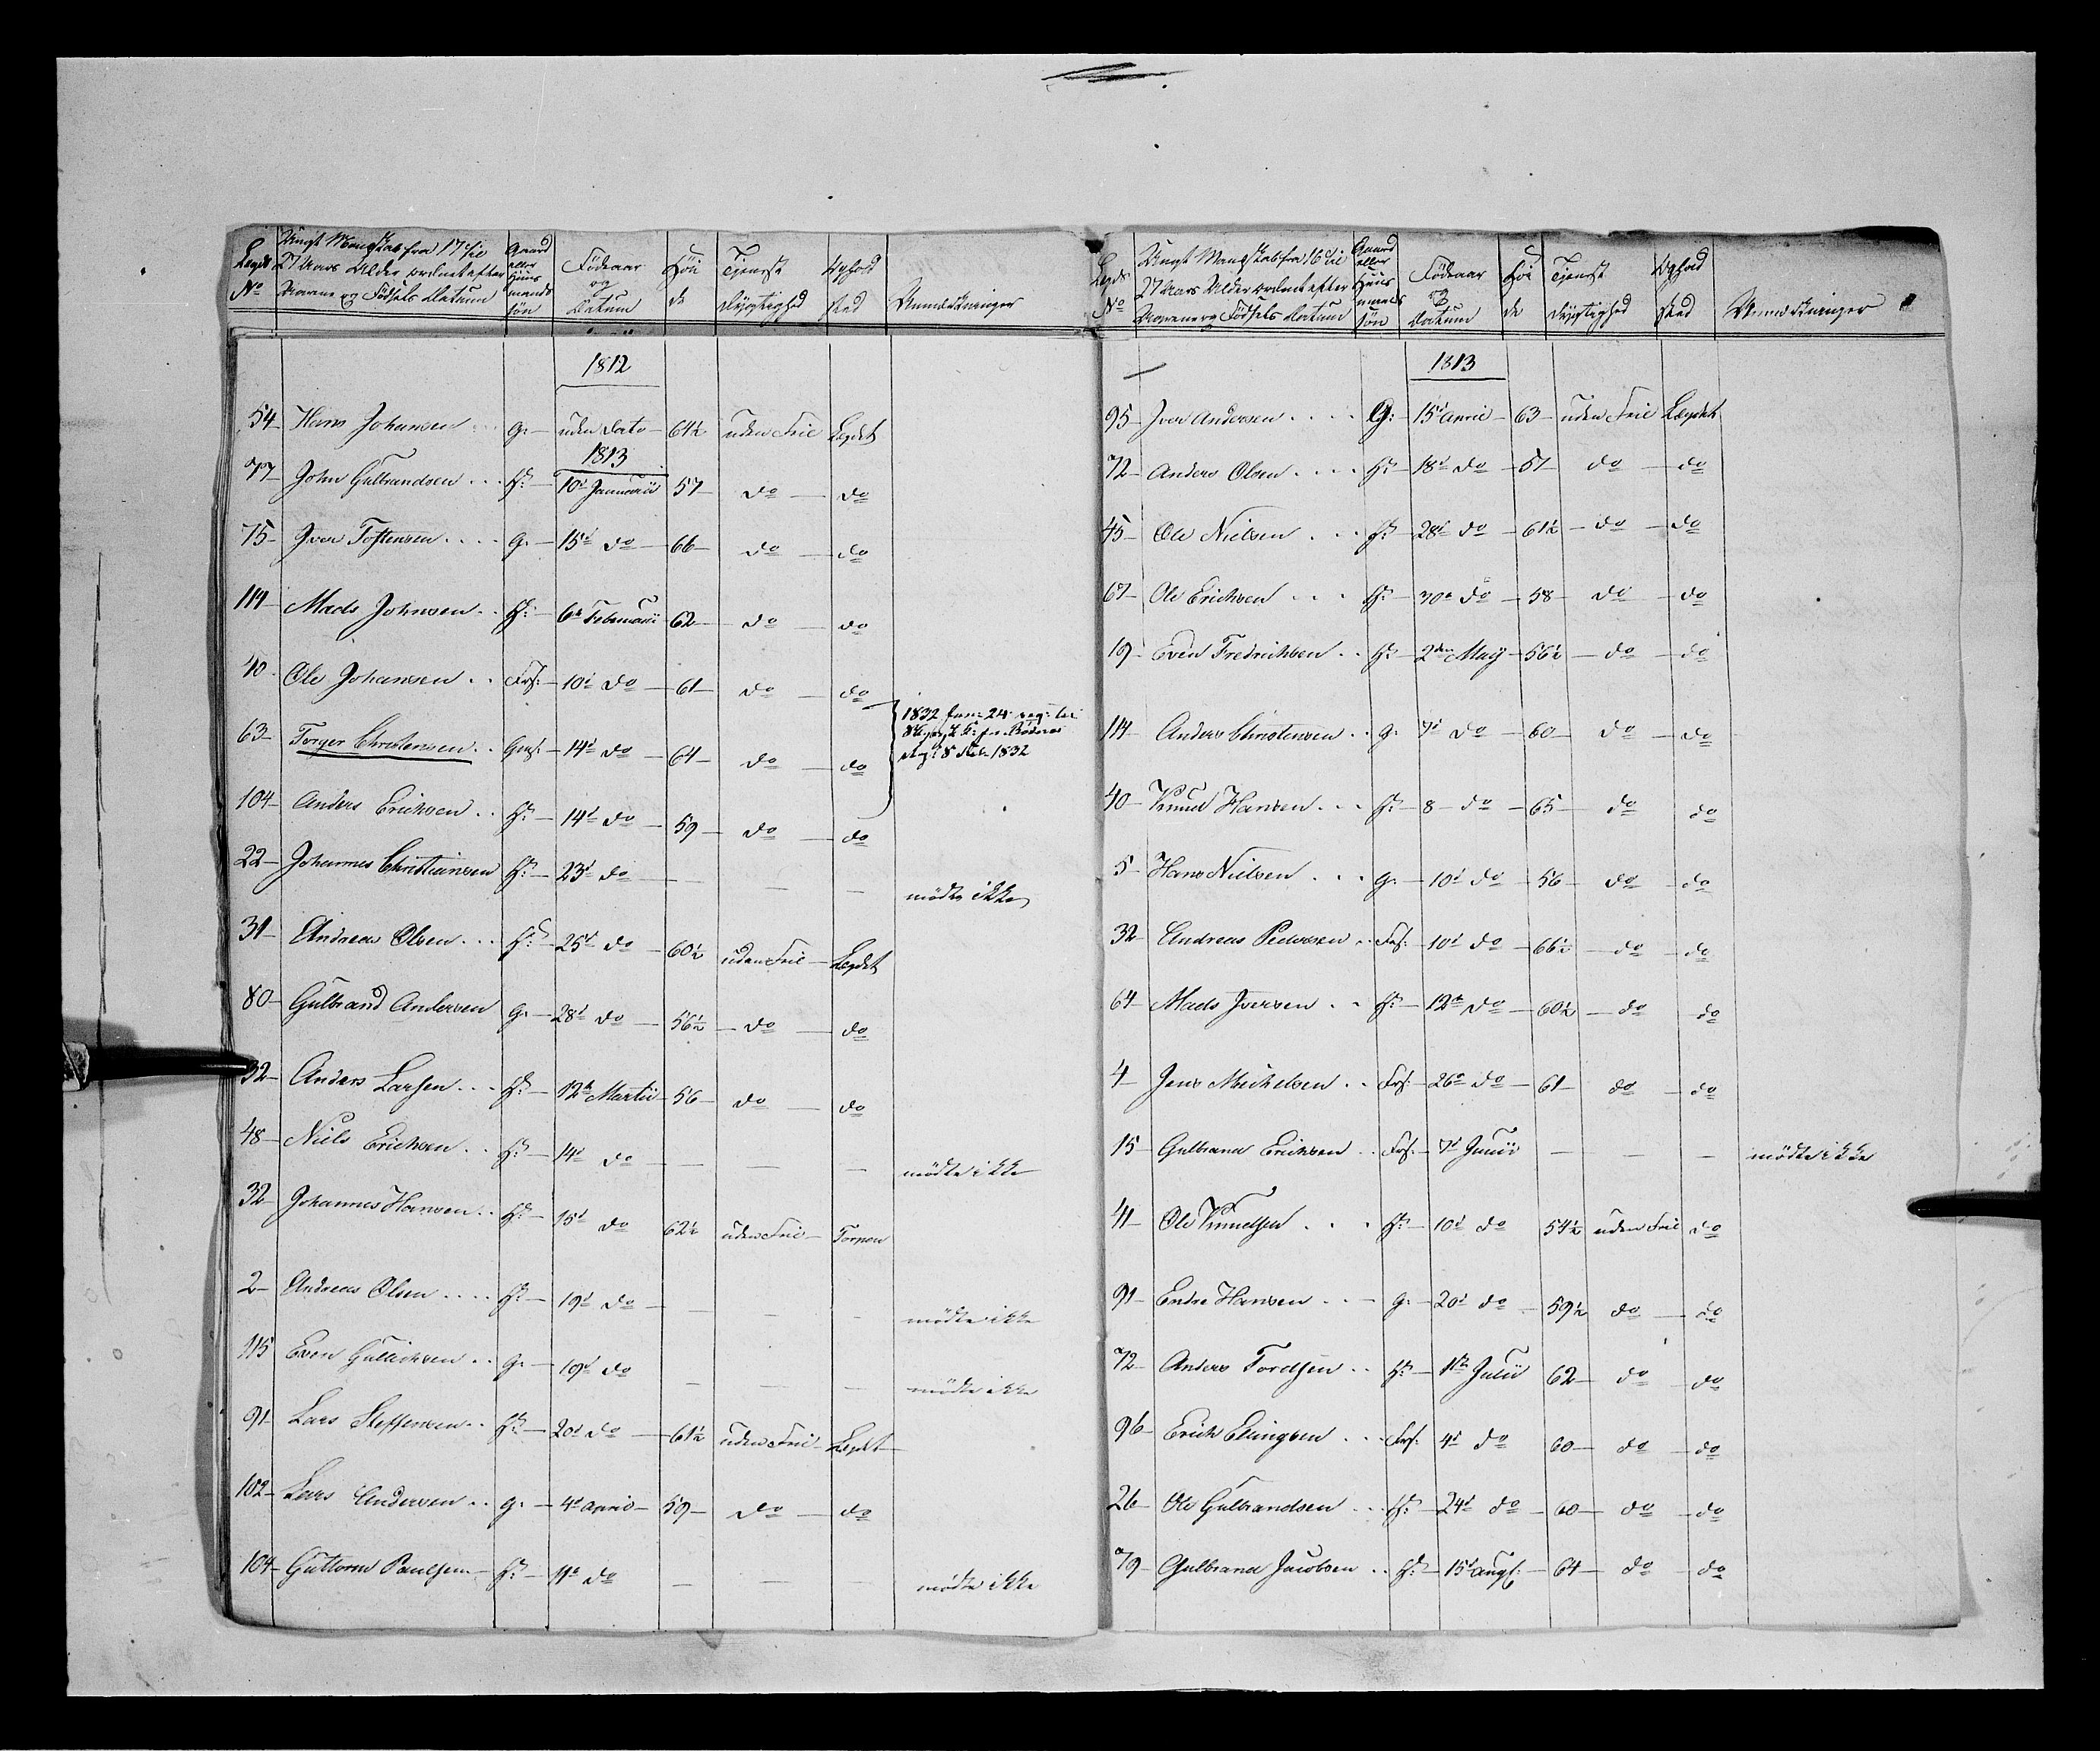 Lægds No
Ungt Mandskab fra 17 til 27 Aars Alder ordnet efter Navne og Fødsels Datum
Gaard eller Huusmands søn
Födeaar og Datum
Höide
Tjeneste Dygtighed
Ophold sted
Anmærkninger
1812
54 Hans Johansen G. uden Dato 64½ uden Feil Lægdet
1813
77 John Gulbrandsen . . . H: 10d Januarii 57 do do
75 Iver Tostensen . . . . G. 15d do 66 do do
114 Mads Johnsen . . H: 6d Februarii 62 do do
40 Ole Johansen . . 10d do 61 do do
63 Torger Christensen . . 14d do 64 do do
1832
8 1832
104 Anders Erichsen . . H: 14d do 59 do do
22 Johannes Christiansen H: 23d do mödte ikke
31 Andreas Olsen . . . H: 25d do 60½ uden Feil Lægdet
80 Gulbrand Andersen G. 28d do 56½ do do
32 Anders Larsen . . . H: 12te Martii 56 do do
48 Niels Erichsen . . H: 14d do mödte ikke
32 Johannes Hansen . . H: 15d do 62½ uden Feil
2 Andreas Olsen . . . . H: 19d do mödte ikke
115 Even Gullichsen . . G. 19d do mödte ikke
91 Lars Steffensen . . H: 20d do 61½ uden Feil Lægdet
102 Lars Andersen . . G. 4d April 59 do do
104 Guttorm Paulsen H: 11te do mödte ikke
Lægds No
Ungt Mandskab fra 16 til 27 Aars Alder ordnet efter Navne og Fødsels Datum
Gaard eller Huusmands søn
Födeaar og Datum
Höide
Tjeneste Dygtighed
Ophold sted
Anmærkninger
1813
95 Iver Andersen . . . . G: 15d April 63 uden Feil Lægdet
72 Anders Olsen . . . . H: 18d do 57 do do
45 Ole Nielsen . . . H: 28d do 61½ do do
67 Ole Erichsen . . . H: 30te do 58 do do
19 Even Fredrichsen . . H: 2den May 56½ do do
114 Anders Christensen . . G. 7d do 60 do do
40 Knud Hansen . . . H: 8 do 65 do do
5 Hans Nielsen . . . G. 10d do 56 do do
32 Andreas Pedersen . . 10d do 66½ do do
64 Mads Iversen . . H: 12te do 60½ do do
4 Jens Michelsen . . 26te do 61 do do
15 Gulbrand Erichsen . . 7d Junii mödte ikke
41 Ole Knudsen . . . H: 10d do 54½ uden Feil do
91 Endre Hansen . . G. 20d do 59½ do do
72 Anders Tordsen . . H: 1ste Julii 62 do do
96 Erich Ellingsen . . . 4d do 60 do do
26 Ole Gulbrandsen . . . H: 24d do 60 do do
79 Gulbrand Jacobsen . . H: 15d Aug: 64 do do